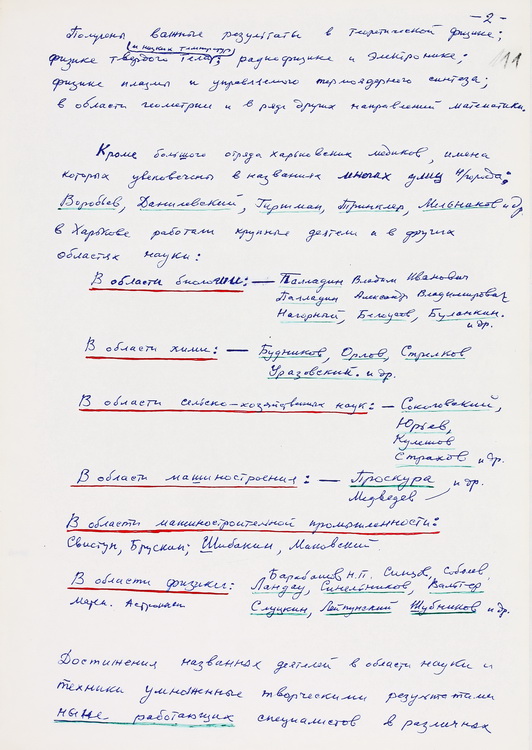 -2-
111
Получены важные результаты в теоретической физике;
(и низких температур)
физике твердого тела; радиофизике и электронике;
физике плазмы и управляемого термоядерного синтеза;
в области геометрии и в ряде других направлений математики.
Кроме большого отряда харьковских медиков, имена
которых увековечены в названиях многих улиц н/города:
Воробьев, Данилевский, Гиршман, Тринклер, Мельников и др.
в Харькове работали крупные деятели и в других
областях науки:
В области биологии: — Палладин Владим Иванович
Палладин Александр Владимирович
Нагорный, Белоусов, Буланкин.
и др.
В области химии: — Будников, Орлов, Стрелков
Уразовский. и др.
В области сельско-хозяйственных наук: — Соколовский,
Юрьев,
Кулешов
Страхов и др.
В области машиностроения: — Проскура и др.
Медведев
В области машиностроительной промышленности:
Свистун, Брускин; Шибакин, Маковский.
Барабашов Н.П. Синцов, Соболев
В области физики: Ландау, Синельников, Вальтер
Матем. Астрономии Слуцкин, Лейпунский Шубников и др.
Достижения названных деятелей в области науки и
техники умноженные творческими результатами
ныне работающих специалистов в различных